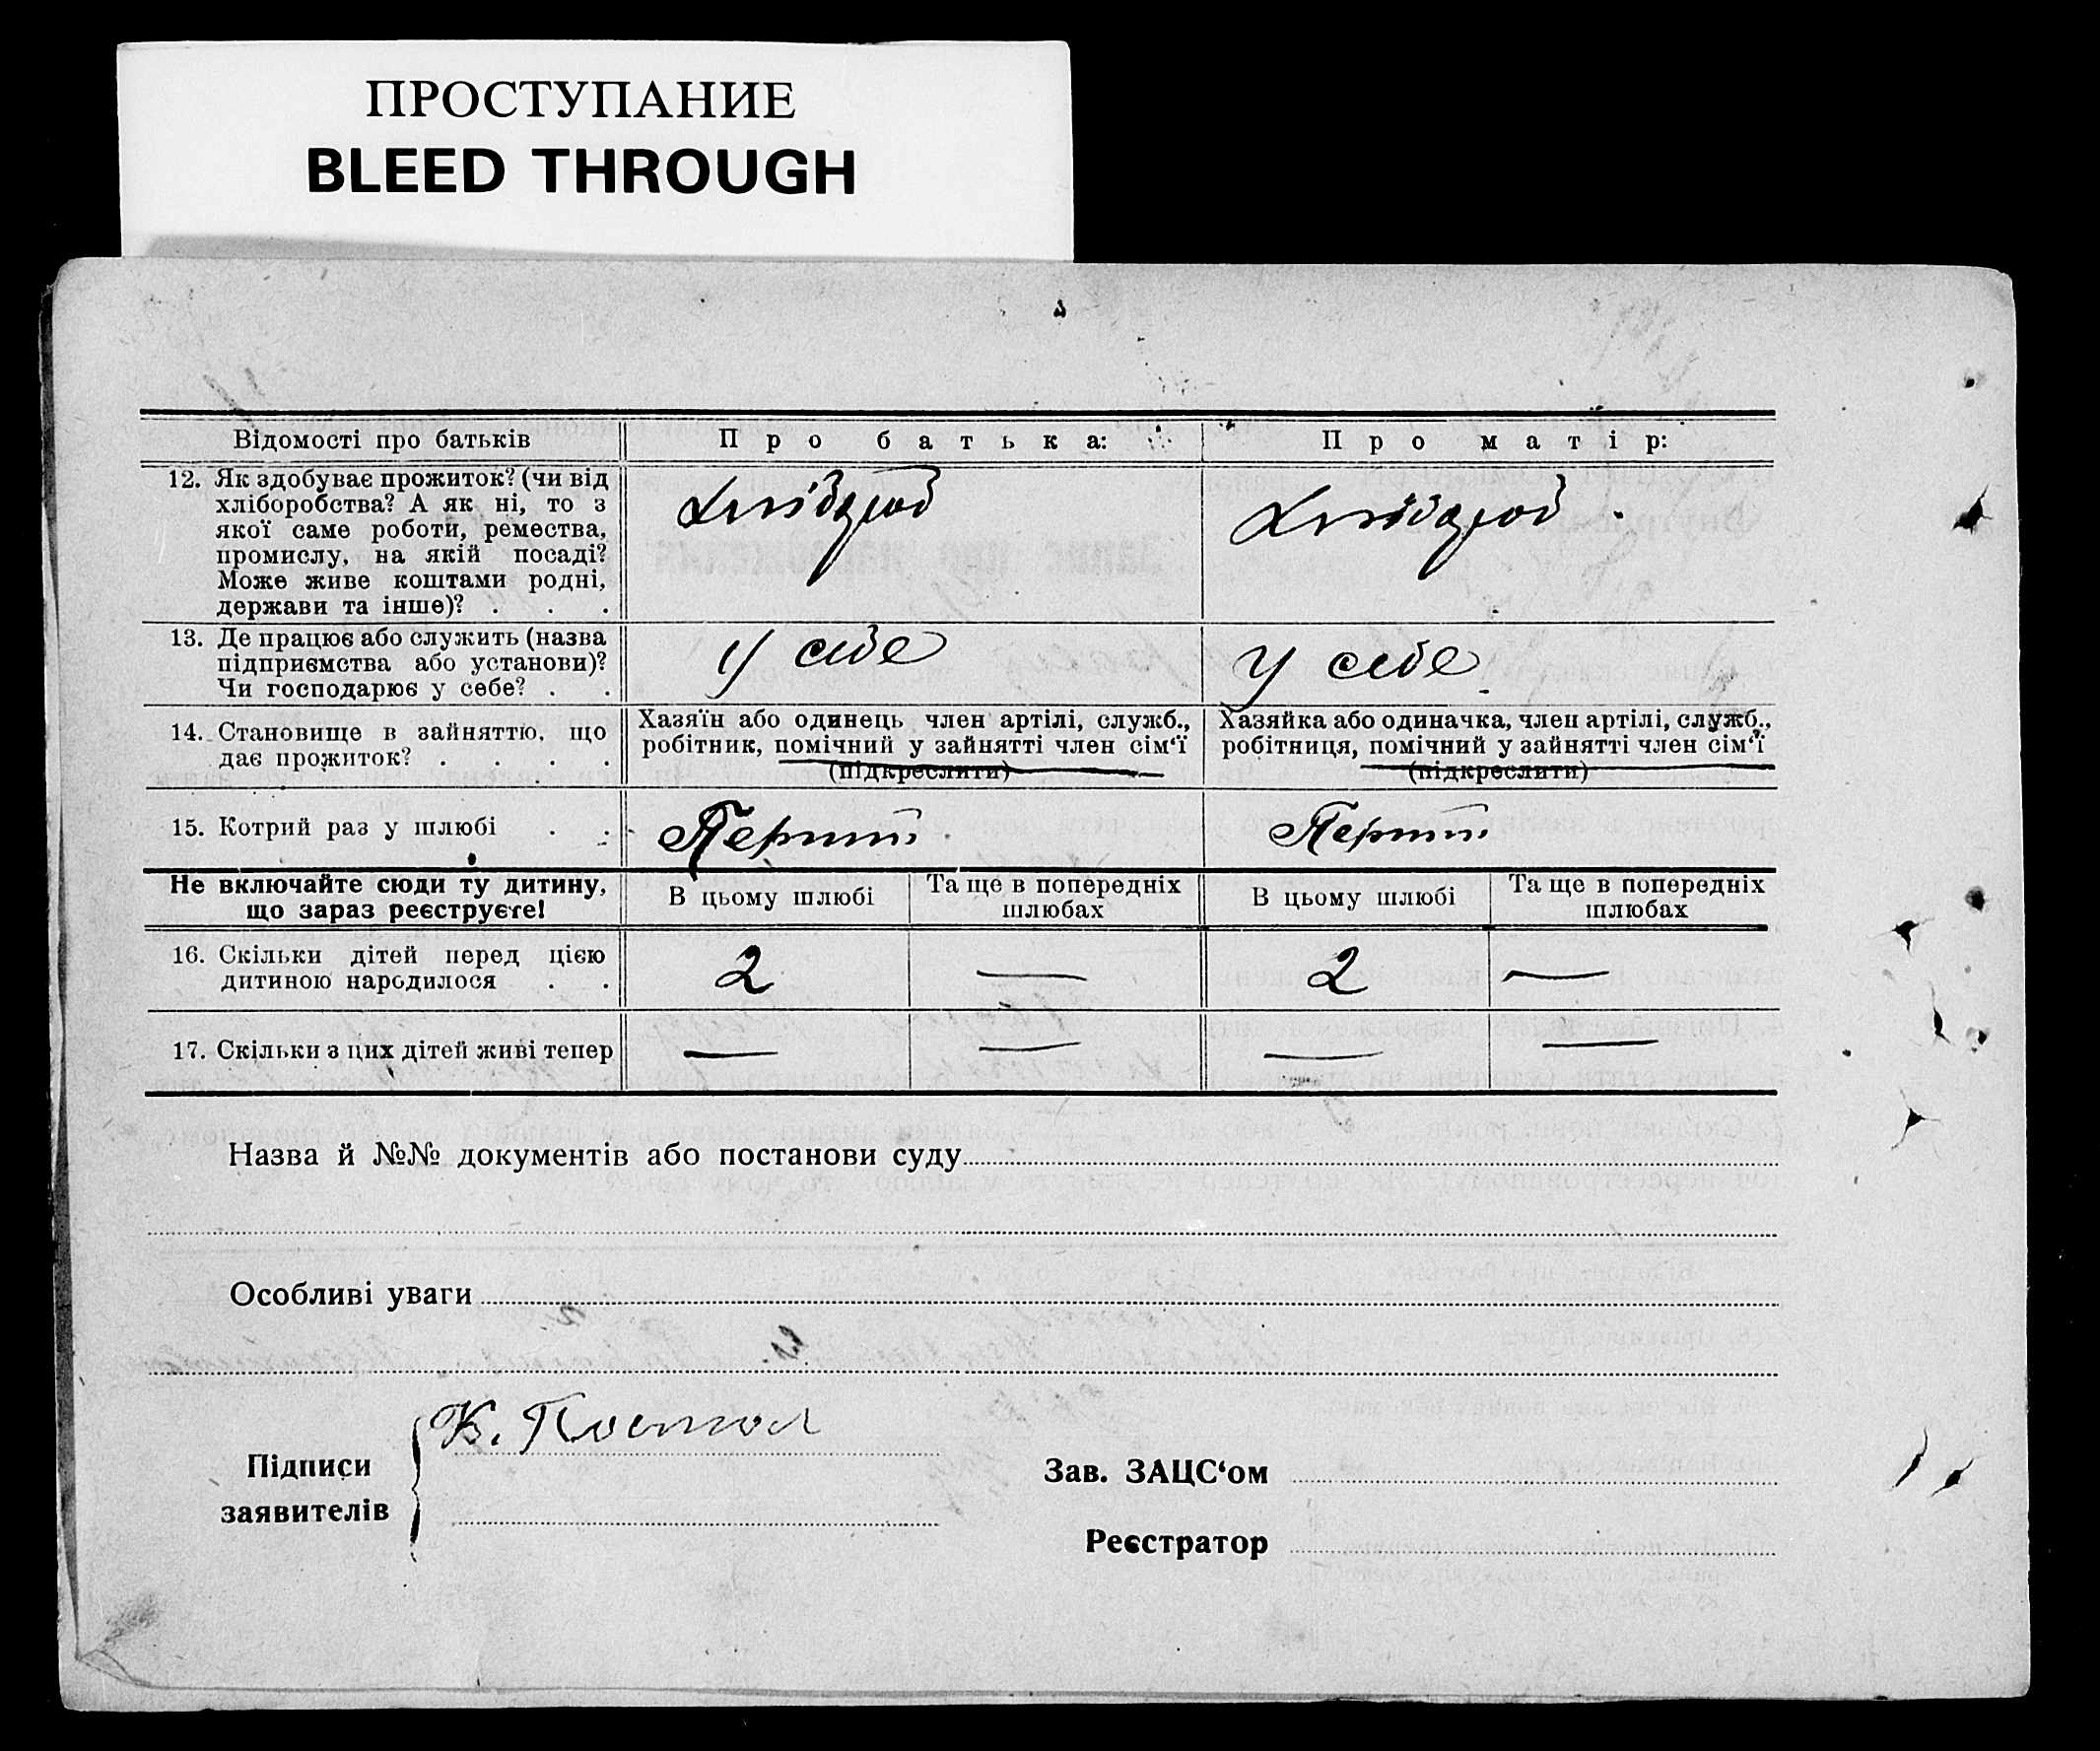 ПРОСТУПАНИЕ
BLEED THROUGH
Відомості про батьків
Про батька:
Про матір:
12. Як здобуває прожиток? (чи від
хліборобства? А як ні, то з
якої саме роботи, ремества,
промислу, на якій посаді?
Може живе коштами родні,
держави та інше)? . . .
Хлібороб
Хлібороб
13. Де працює або служить (назва
підприємства або установи)?
Чи господарює у себе? . .
У себе
У себе
14. Становище в зайняттю, що
дає прожиток? . . . .
Хазяїн або одинець, член артілі, служб.,
робітник, помічний у зайнятті член сім'ї
(підкреслити)
Хазяйка або одиначка, член артілі, служб.,
робітниця, помічний у зайнятті член сім'ї
(підкреслити)
15. Котрий раз у шлюбі . .
Перший
Перший
Не включайте сюди ту дитину,
що зараз реєструєте!
В цьому шлюбі
Та ще в попередніх
шлюбах
В цьому шлюбі
Та ще в попередніх
шлюбах
16. Скільки дітей перед цією
дитиною народилося . .
2
—
2
—
17. Скільки з цих дітей живі тепер
—
—
—
—
Назва й №№ документів або постанови суду
Особливі уваги
Підписи
заявителів
К. Постол
Зав. ЗАЦС'ом
Реєстратор